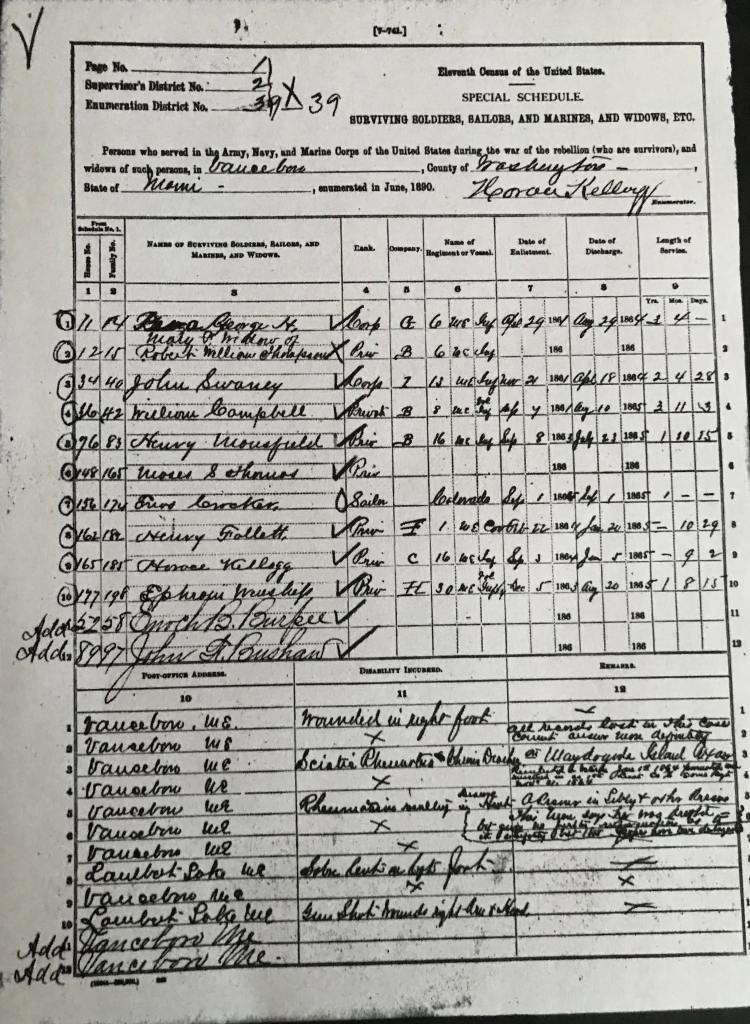 [7-741.]
Page No. 1
Supervisor's District No. 2
Enumeration District No. 39 X 39
Eleventh Census of the United States.
SPECIAL SCHEDULE.
SURVIVING SOLDIERS, SAILORS, AND MARINES, AND WIDOWS, ETC.
Persons who served in the Army, Navy, and Marine Corps of the United States during the war of the rebellion (who are survivors), and
widows of such persons, in Vanceboro, County of Washington,
State of, enumerated in June, 1890. Horace Kellogg
Enumerator.
From Schedule No. 1.
House No. Family No. NAMES OF SURVIVING SOLDIERS, SAILORS, AND MARINES, AND WIDOWS. Rank. Company. Name of Regiment or Vessel. Date of Enlistment. Date of Discharge. Length of Service.
1 2 3 4 5 6 7 8 9
Yrs. Mos. Days.
1 11 14 George H. Corp G 6 Me Inf Apr 29 1861 Aug 29 1864 3 4 - 1
Mary P Widow of
2 12 15 Robert William Thompson X Priv B 6 Me Inf 186 186 2
3 34 40 John Swaney Corp I 13 Me Inf Nov 21 1861 Apl 18 1864 2 4 28 3
4 36 42 William Campbell Privat B 8 Me Inf Sep 7 1861 Aug 10 1865 3 11 3 4
5 76 83 Henry Mousfield Priv B 16 Me Inf Sep 8 1863 July 23 1865 1 10 15 5
6 148 165 Moses S Thomas Priv 186 186 6
7 156 174 Crocker Sailor Colorado Sep 1 186 Sep 1 1865 1 - - 7
8 162 182 Henry Follett Priv F 1 Me 22 1864 Jan 20 1865 - 10 29 8
9 165 185 Horace Kellogg Priv C 16 Me Inf Sep 3 1864 Jun 5 1865 - 9 2 9
10 177 198 Ephraim Priv H 30 Me Dec 5 1863 Aug 20 1865 1 8 15 10
Add 52 58 Enoch B. Burpee 186 186 11
Add 89 97 John F. Bushaw 186 186 12
POST-OFFICE ADDRESS. DISABILITY INCURRED. REMARKS.
10 11 12
1 Vanceboro, ME Wounded in right foot 1
2 Vanceboro ME X all records lost in this case
cannot answer more definitely 2
3 Vanceboro ME Sciatic Rheumatis & Chronic Island 3
4 Vanceboro ME X
5 Vanceboro ME Rheumatism resulting in Heart A Prisoner in Libby & other Prisons
6 Vanceboro ME X This man says he was
7 Vanceboro ME X
8 Lambert Lake ME left foot
9 Vanceboro ME X X
10 Lambert Lake ME Gun Shot Wounds right & Hand
Add Vanceboro Me
Add Vanceboro Me.